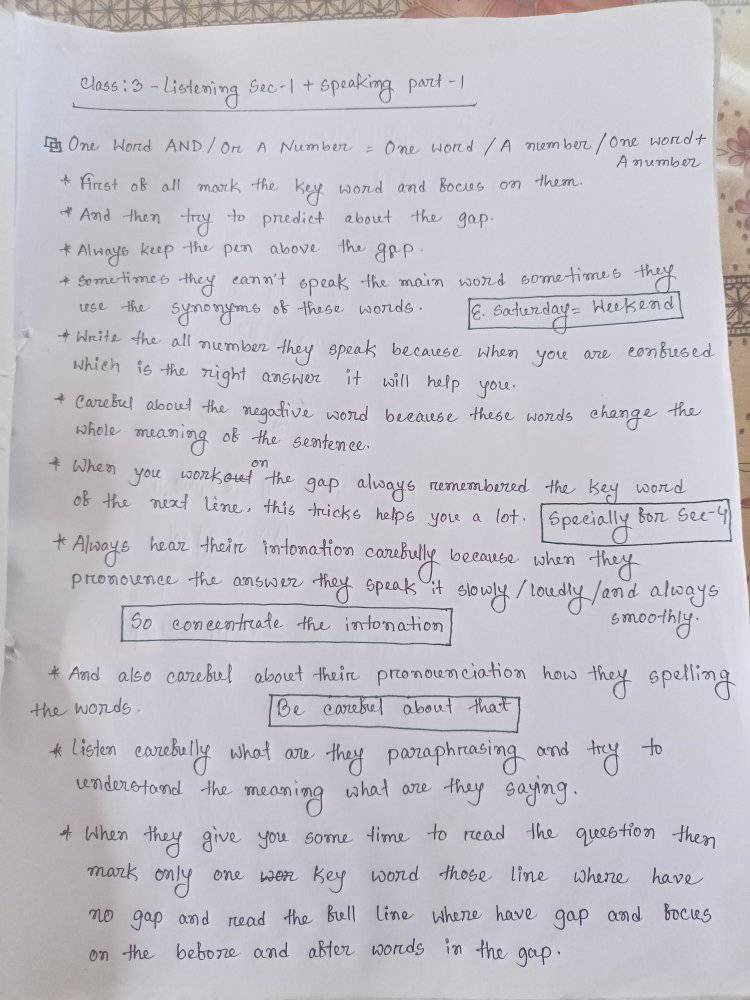 Class: 3 - Listening Sec-1 + Speaking part -1
One Word AND/Or A Number = One word / A number / One word +
A number
* First of all mark the key word and focus on them.
* And then try to predict about the gap.
* Always keep the pen above the gap.
* Sometimes they cann't speak the main word sometimes they
use the synonyms of these words. E. Saturday = Weekend
* Write the all number they speak because when you are confused
which is the right answer it will help you.
* Careful about the negative word because these words change the
whole meaning of the sentence.
* When you work on the gap always remembered the key word
of the next line, this tricks helps you a lot. Specially for Sec-4
* Always hear their intonation carefully because when they
pronounce the answer they speak it slowly / loudly / and always
smoothly.
So concentrate the intonation
* And also careful about their pronounciation how they spelling
the words. Be careful about that
* Listen carefully what are they paraphrasing and try to
understand the meaning what are they saying.
* When they give you some time to read the question then
mark only one key word those line where have
no gap and read the full line where have gap and focus
on the before and after words in the gap.